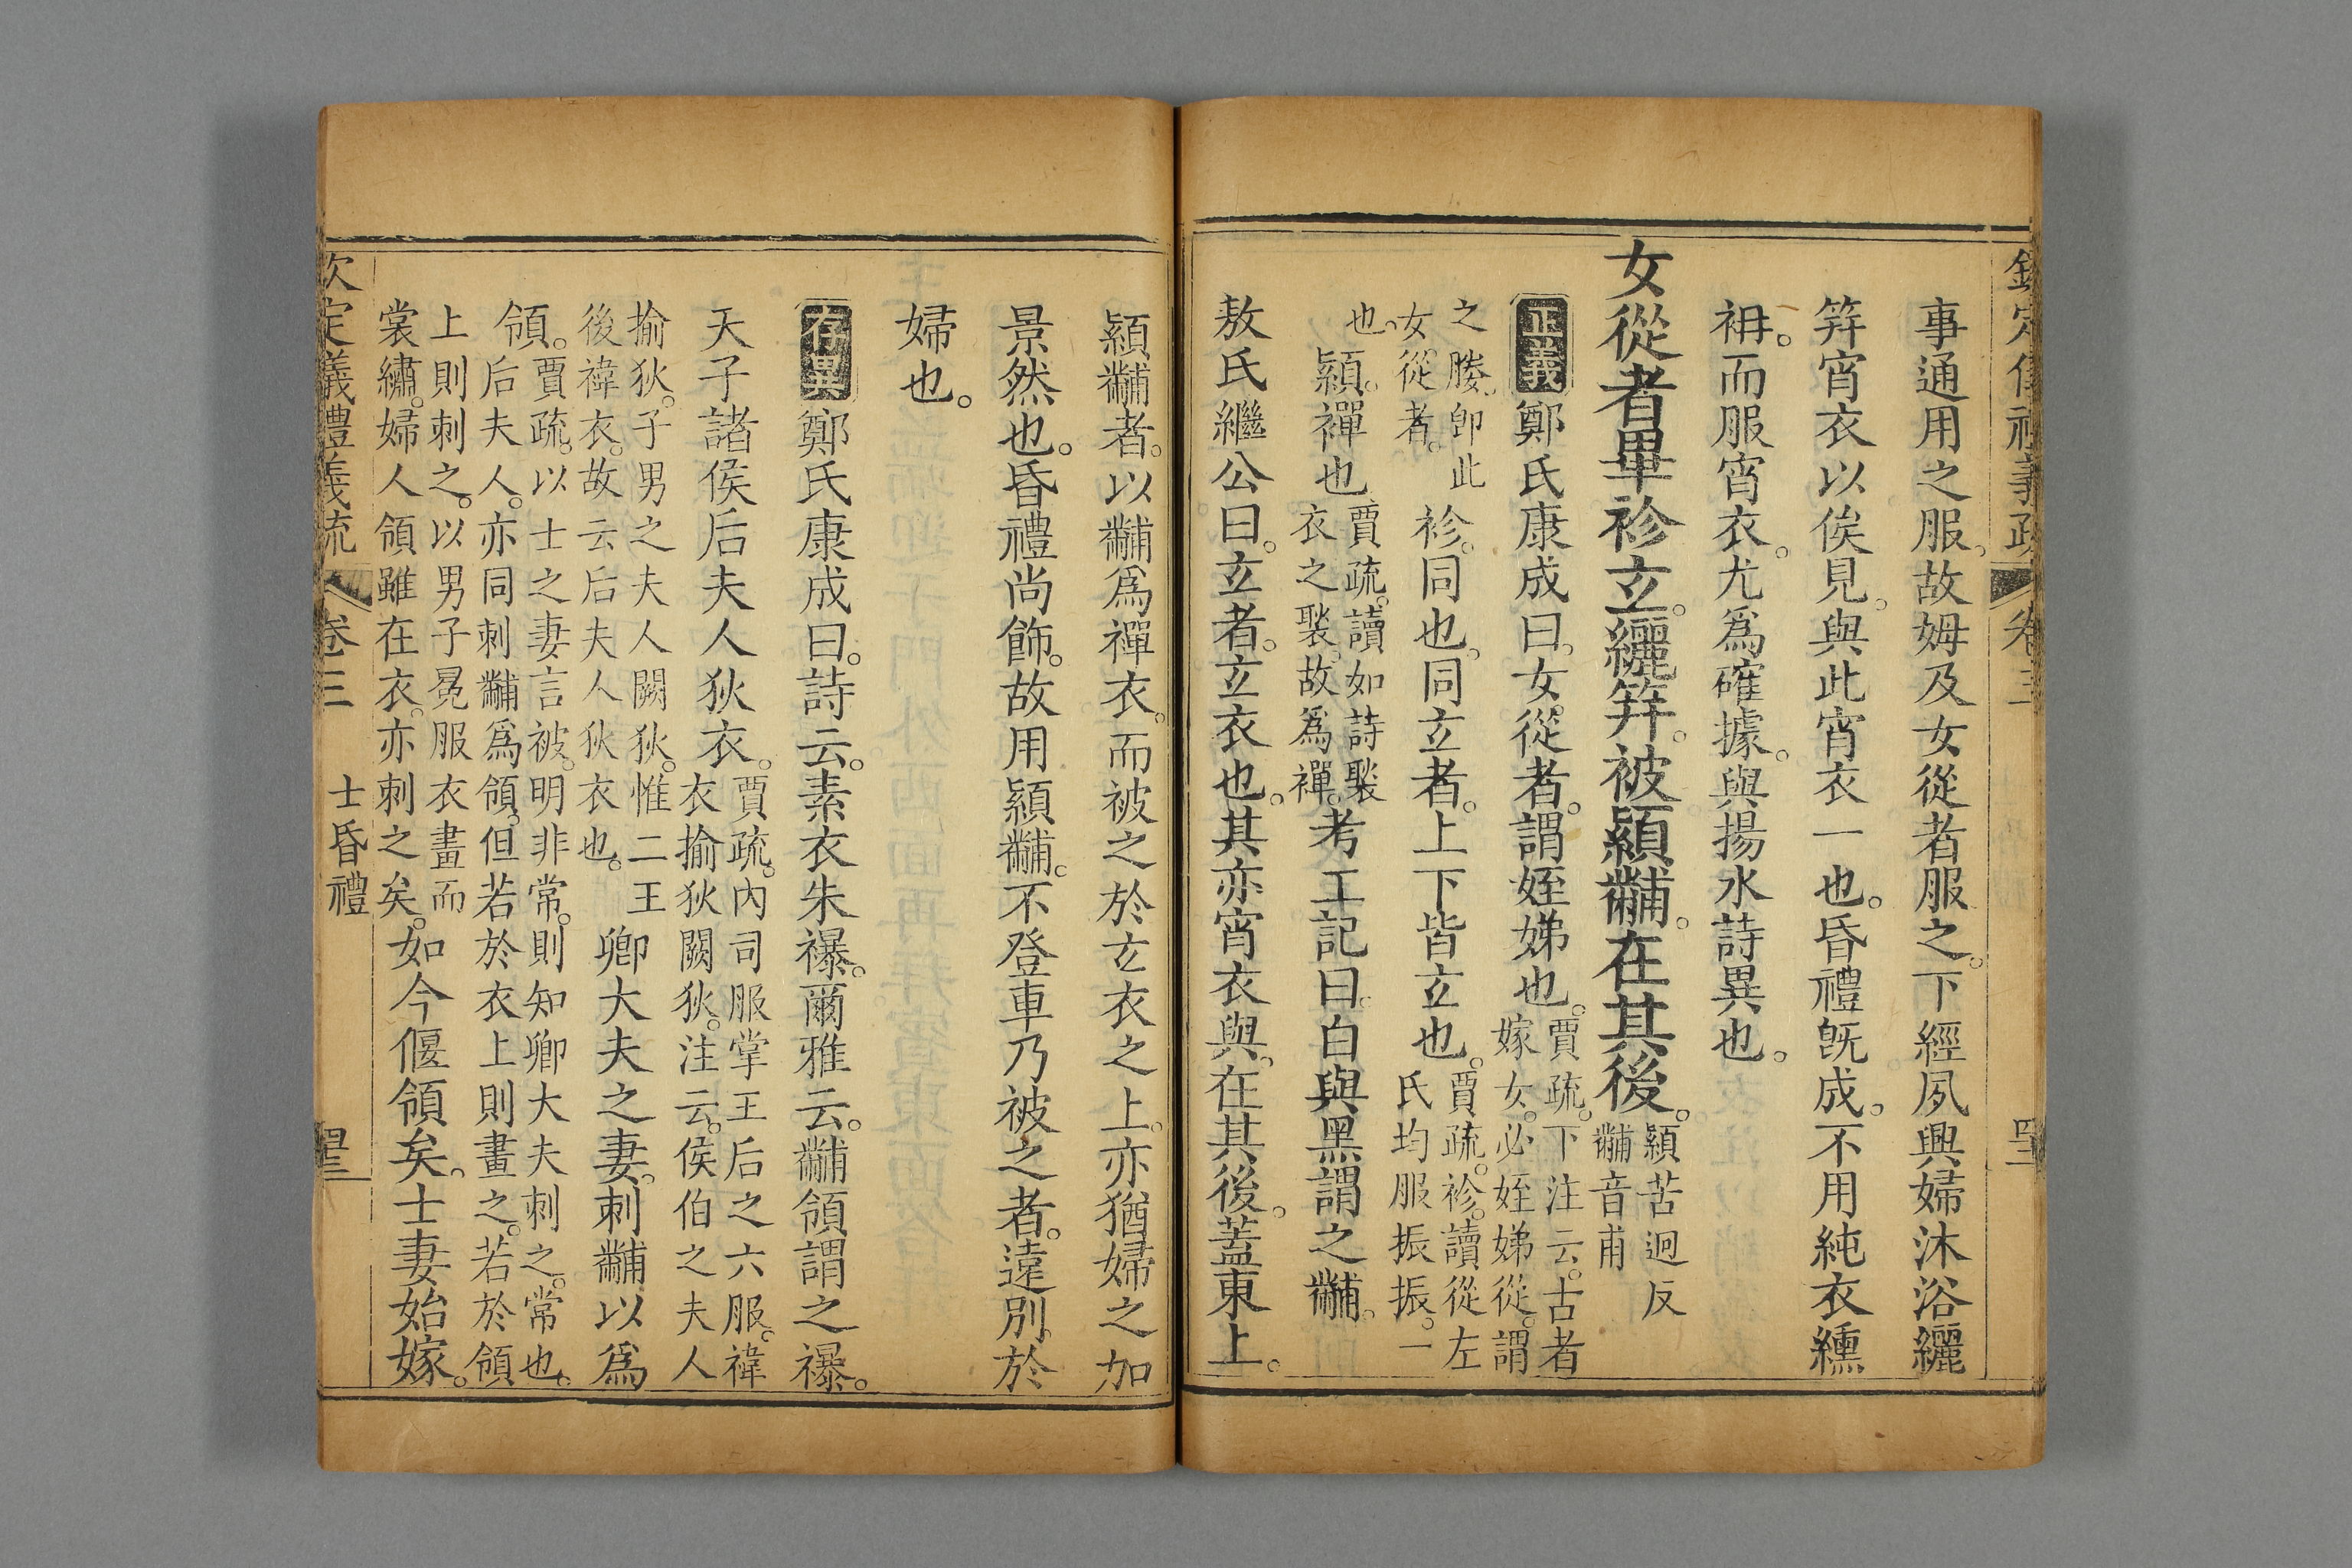 欽定儀禮義疏 卷三
事通用之服。故姆及女從者服之。下經夙興婦沐浴纚
笄宵衣以俟見。與此宵衣一也。昏禮旣成。不用純衣纁
袡。而服宵衣。尤爲確據。與揚水詩異也。
女從者畢袗玄。纚笄。被顈黼。在其後。
顈苦迥反
黼音甫
正義 鄭氏康成曰。女從者。謂姪娣也。
賈疏。下注云。古者
嫁女。必姪娣從。謂
之媵。卽此
女從者。
袗。同也。同玄者。上下皆玄也。
賈疏。袗。讀從左
氏均服振振。一
也。
顈。禪也。
賈疏。讀如詩褧
衣之褧。故爲禪。
考工記曰。白與黑謂之黼。
敖氏繼公曰。玄者。玄衣也。其亦宵衣與。在其後。蓋東上。
顈黼者。以黼爲禪衣。而被之於玄衣之上。亦猶婦之加
景然也。昏禮尚飾。故用顈黼。不登車乃被之者。遠別於
婦也。
存異 鄭氏康成曰。詩云。素衣朱襮。爾雅云。黼領謂之襮。
天子諸侯后夫人狄衣。
賈疏。內司服掌王后之六服。禕
衣揄狄闕狄。注云。侯伯之夫人
揄狄。子男之夫人闕狄。惟二王
後禕衣。故云后夫人狄衣也。
卿大夫之妻。刺黼以爲
領。
賈疏。以士之妻言被。明非常。則知卿大夫刺之。常也。
后夫人。亦同刺黼爲領。但若於衣上則畫之。若於領
上則刺之。以男子冕服衣畫而
裳繡。婦人領雖在衣。亦刺之矣。
如今偃領矣。士妻始嫁。
欽定儀禮義疏 卷三 士昏禮